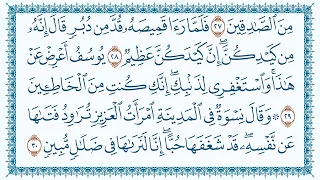 مِنَ الصَّادِقِينَ ٢٧ فَلَمَّا رَءَا قَمِيصَهُ قُدَّ مِن دُبُرٍ قَالَ إِنَّهُ
مِن كَيْدِكُنَّ إِنَّ كَيْدَكُنَّ عَظِيمٌ ٢٨ يُوسُفُ أَعْرِضْ عَنْ
هَٰذَا وَاسْتَغْفِرِي لِذَنبِكِ إِنَّكِ كُنتِ مِنَ الْخَاطِئِينَ
٢٩ وَقَالَ نِسْوَةٌ فِي الْمَدِينَةِ امْرَأَتُ الْعَزِيزِ تُرَاوِدُ فَتَاهَا
عَن نَّفْسِهِ قَدْ شَغَفَهَا حُبًّا إِنَّا لَنَرَاهَا فِي ضَلَالٍ مُّبِينٍ ٣٠